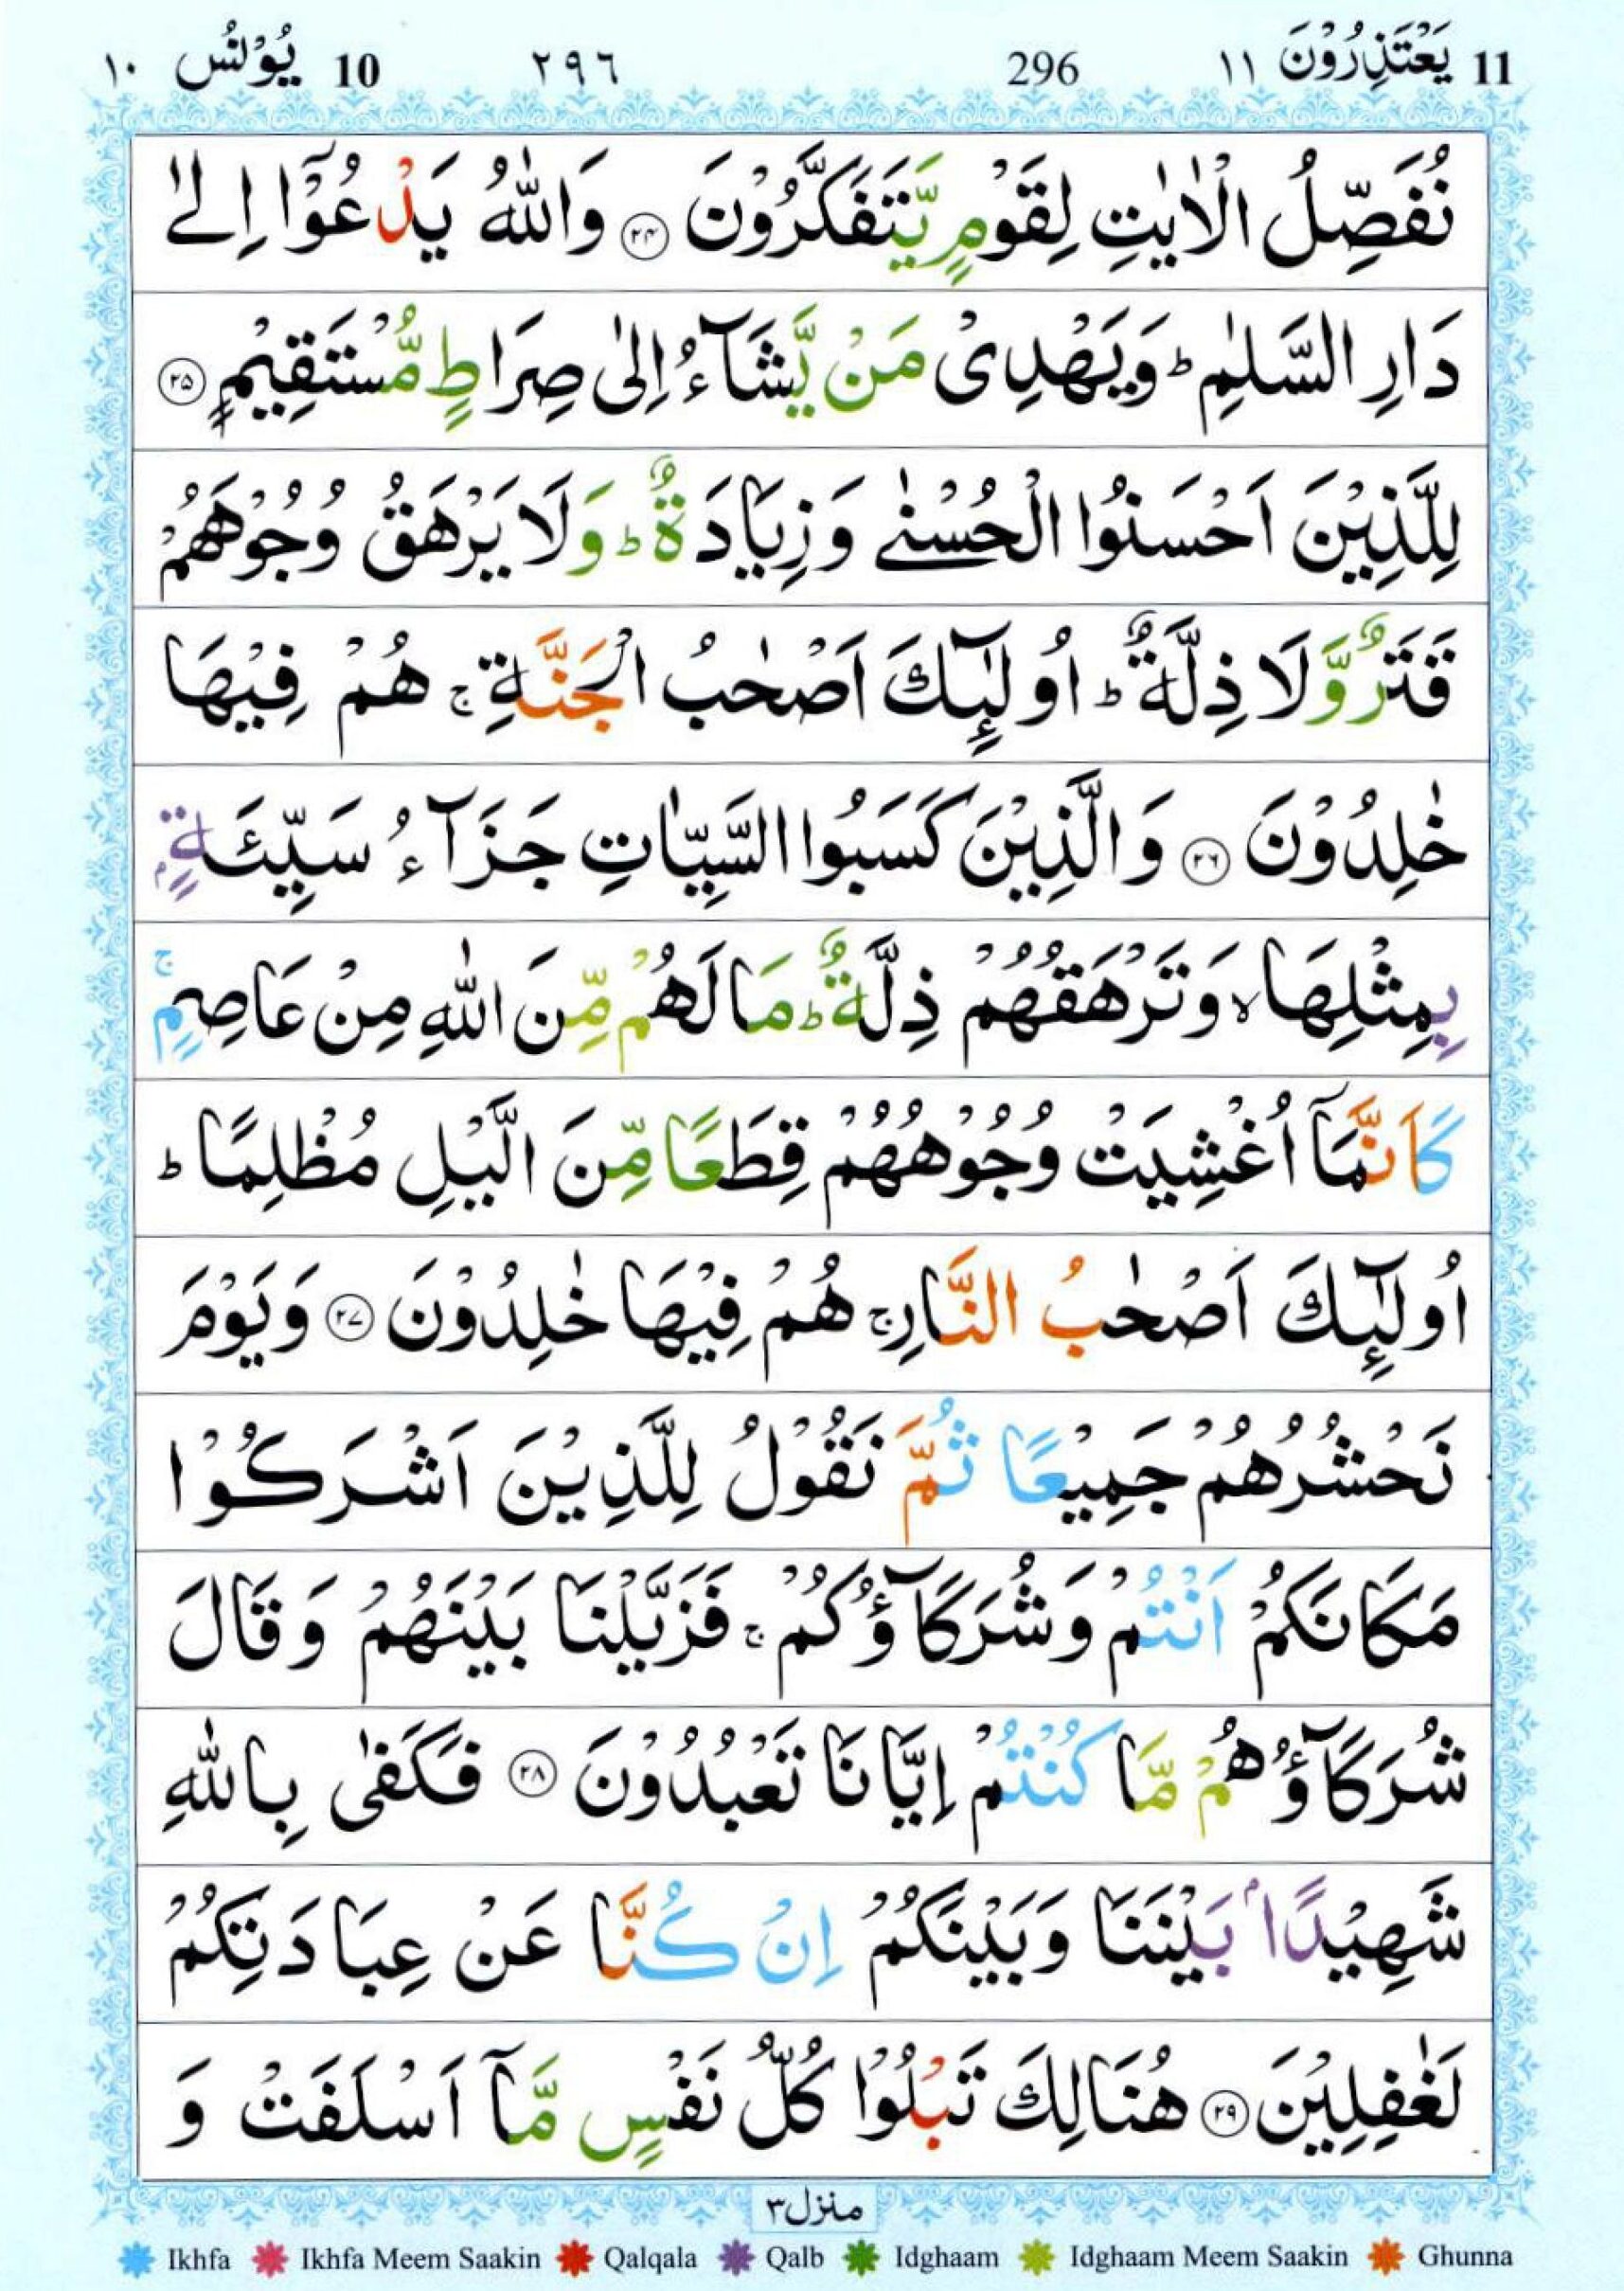 11 يَعْتَذِرُوْنَ ١١ 296 ٢٩٦ 10 يُوْنُس ١٠
نُفَصِّلُ الْاٰيٰتِ لِقَوْمٍ يَّتَفَكَّرُوْنَ ۝٢٤ وَاللّٰهُ يَدْعُوْۤا اِلٰى
دَارِ السَّلٰمِ ؕ وَيَهْدِىْ مَنْ يَّشَآءُ اِلٰى صِرَاطٍ مُّسْتَقِيْمٍ ۝٢٥
لِلَّذِيْنَ اَحْسَنُوا الْحُسْنٰى وَزِيَادَةٌ ؕ وَلَا يَرْهَقُ وُجُوْهَهُمْ
قَتَرٌ وَّلَا ذِلَّةٌ ؕ اُولٰٓئِكَ اَصْحٰبُ الْجَنَّةِ ۚ هُمْ فِيْهَا
خٰلِدُوْنَ ۝٢٦ وَالَّذِيْنَ كَسَبُوا السَّيِّاٰتِ جَزَآءُ سَيِّئَةٍۭ
بِمِثْلِهَا ۙ وَتَرْهَقُهُمْ ذِلَّةٌ ؕ مَا لَهُمْ مِّنَ اللّٰهِ مِنْ عَاصِمٍ ۚ
كَاَنَّمَاۤ اُغْشِيَتْ وُجُوْهُهُمْ قِطَعًا مِّنَ الَّيْلِ مُظْلِمًا ؕ
اُولٰٓئِكَ اَصْحٰبُ النَّارِ ۚ هُمْ فِيْهَا خٰلِدُوْنَ ۝٢٧ وَيَوْمَ
نَحْشُرُهُمْ جَمِيْعًا ثُمَّ نَقُوْلُ لِلَّذِيْنَ اَشْرَكُوْا
مَكَانَكُمْ اَنْتُمْ وَشُرَكَآؤُكُمْ ۚ فَزَيَّلْنَا بَيْنَهُمْ وَقَالَ
شُرَكَآؤُهُمْ مَّا كُنْتُمْ اِيَّانَا تَعْبُدُوْنَ ۝٢٨ فَكَفٰى بِاللّٰهِ
شَهِيْدًاۢ بَيْنَنَا وَبَيْنَكُمْ اِنْ كُنَّا عَنْ عِبَادَتِكُمْ
لَغٰفِلِيْنَ ۝٢٩ هُنَالِكَ تَبْلُوْا كُلُّ نَفْسٍ مَّاۤ اَسْلَفَتْ وَ
منزل ٣
Ikhfa Ikhfa Meem Saakin Qalqala Qalb Idghaam Idghaam Meem Saakin Ghunna